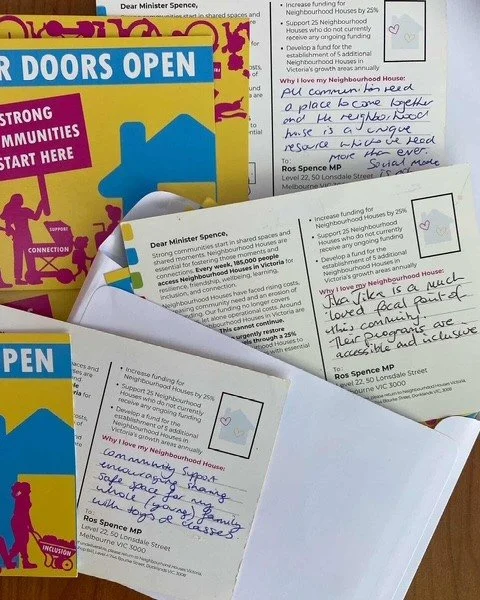 Dear Minister Spence,
Strong communities start in shared spaces and
• Increase funding for
Neighbourhood Houses by 25%
• Support 25 Neighbourhood
Houses who do not currently
receive any ongoing funding
• Develop a fund for the
establishment of 5 additional
Neighbourhood Houses in
Victoria's growth areas annually
Why I love my Neighbourhood House:
All communities need
a place to come together
and the neighbourhood
house is a unique
resource which we need
more than ever.
Social media
is
To:
Ros Spence MP
Level 22, 50 Lonsdale Street
Melbourne VIC
R DOORS OPEN
STRONG
MMUNITIES
START HERE
SUPPORT
CONNECTION
Dear Minister Spence,
Strong communities start in shared spaces and
shared moments. Neighbourhood Houses are
essential for fostering those moments and
access Neighbourhood Houses in Victoria for
resilience, friendship, wellbeing, learning,
inclusion, and connection.
Neighbourhood Houses have faced rising costs,
increasing community need and an erosion of
funding. Our funding no longer covers
alone operational costs. Around
This cannot continue.
urgently restore
through a 25%
with essential
• Increase funding for
Neighbourhood Houses by 25%
• Support 25 Neighbourhood
Houses who do not currently
receive any ongoing funding
• Develop a fund for the
establishment of 5 additional
Neighbourhood Houses in
Victoria's growth areas annually
Why I love my Neighbourhood House:
Jika Jika is a much
loved focal point of
this community.
Their programs are
accessible and inclusive
To:
Ros Spence MP
Level 22, 50 Lonsdale Street
Melbourne VIC 3000
PEN
INCLUSION
• Increase funding for
Neighbourhood Houses by 25%
• Support 25 Neighbourhood
Houses who do not currently
receive any ongoing funding
• Develop a fund for the
establishment of 5 additional
Neighbourhood Houses in
Victoria's growth areas annually
Why I love my Neighbourhood House:
Community support
encouraging sharing
safe space for my
whole (young) family
with toys & classes
To:
Ros Spence MP
Level 22, 50 Lonsdale Street
Melbourne VIC 3000